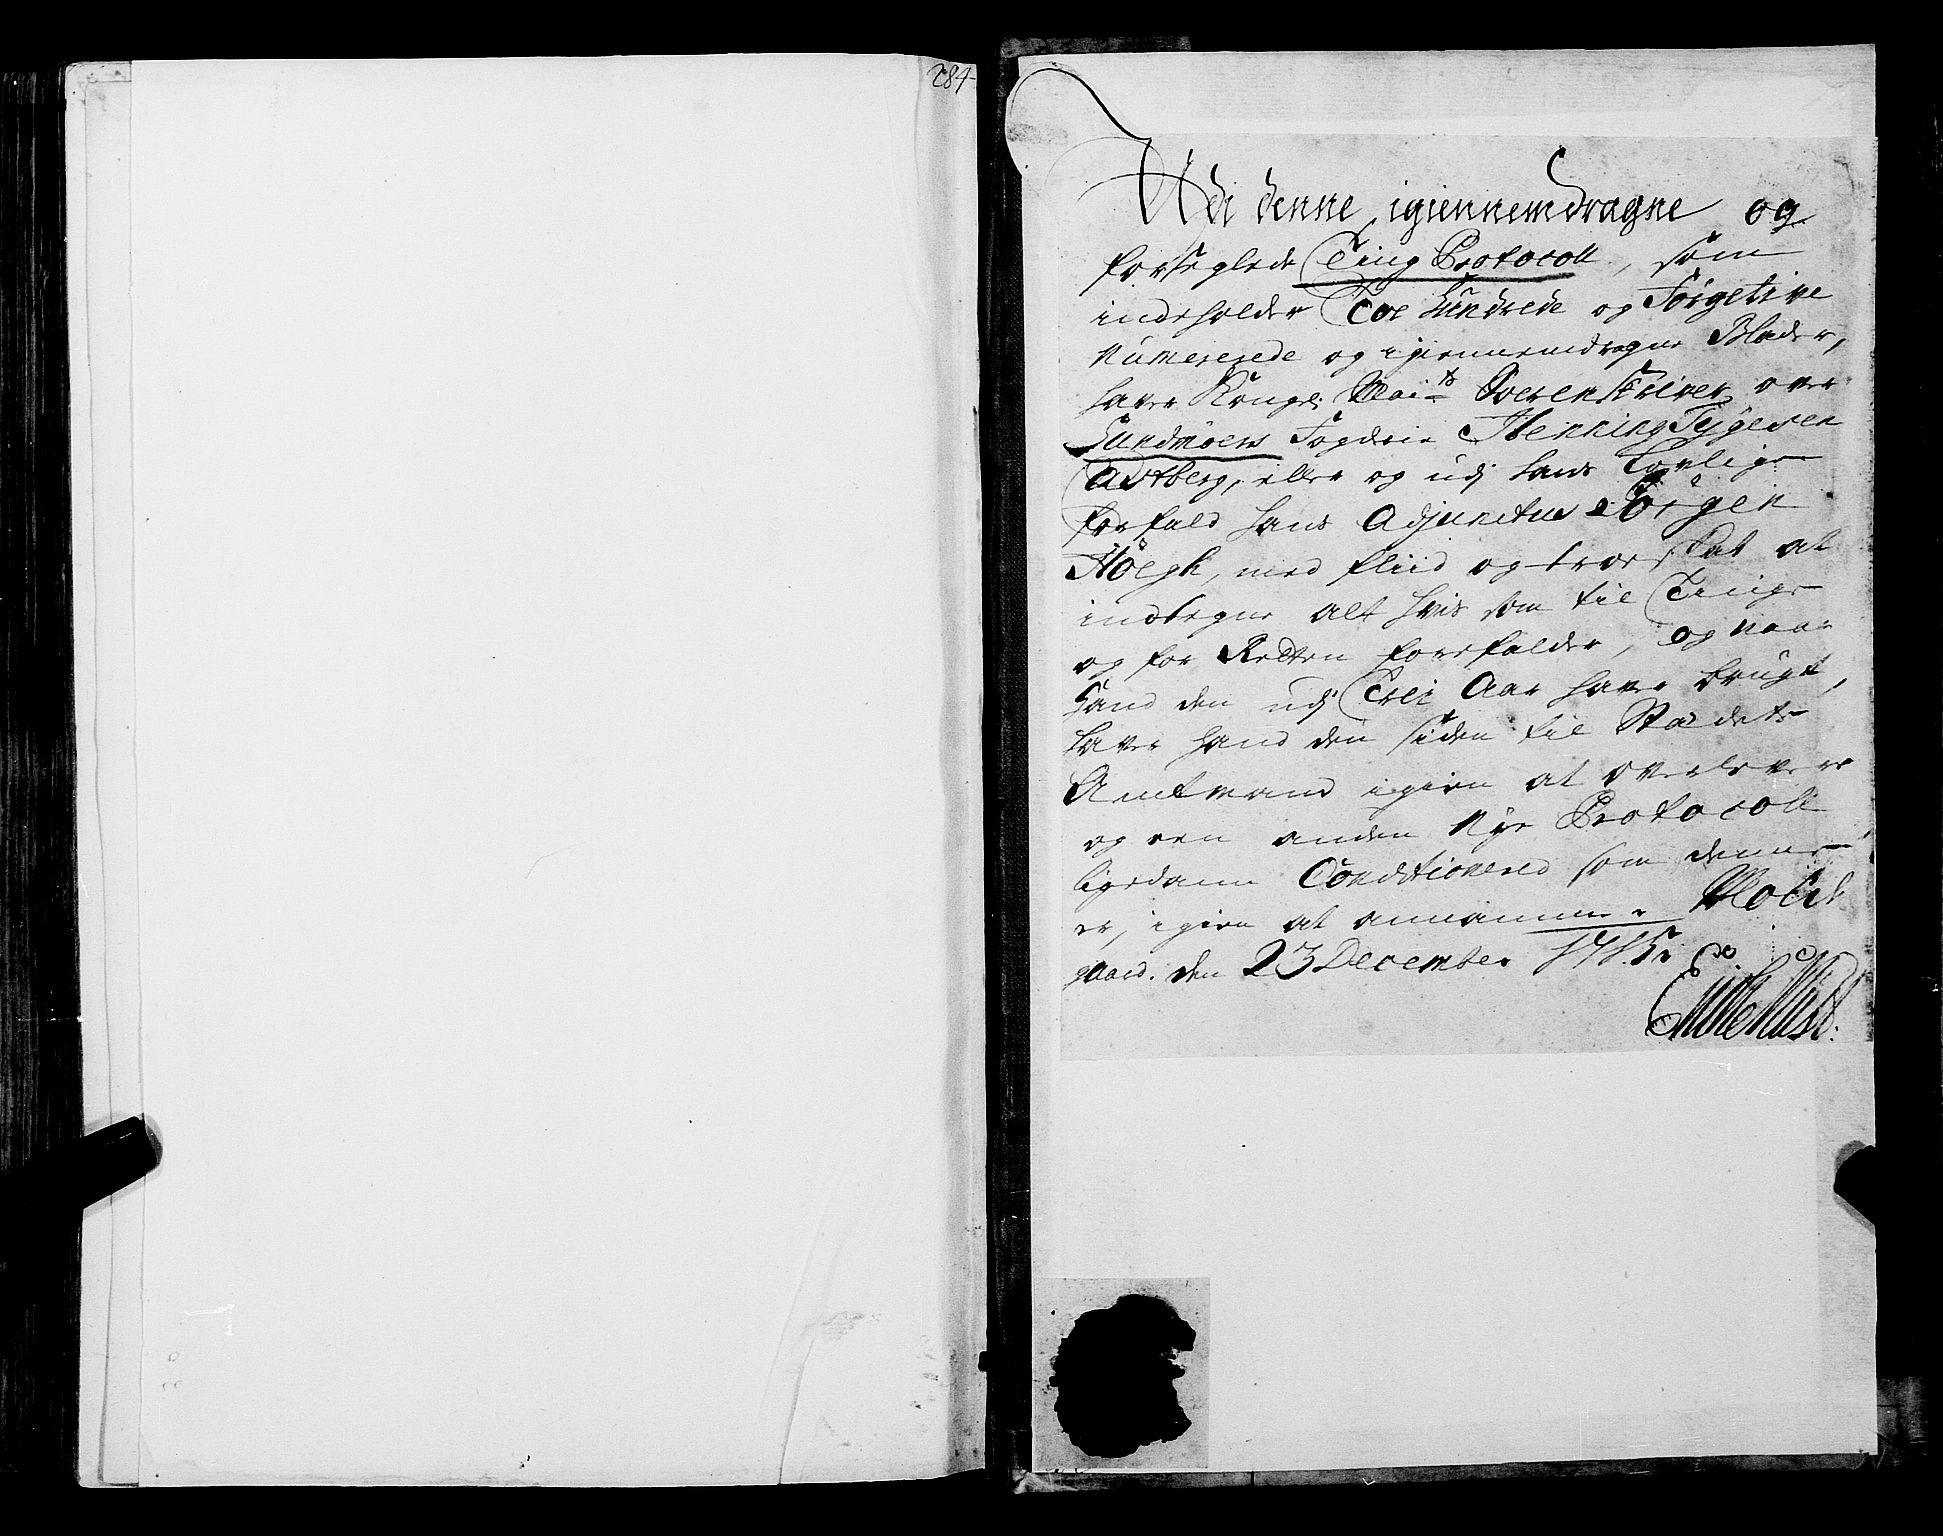 284
Udi denne igiennemdragne og
forseglede Ting Protocoll, som
indeholder Toe Hundrede og Førgetive
Numererede og igiennemdragne Blader,
haver Kongel: Mai:ts Sorenskriver over
Sundmøers Fogderie Henning Tygesen
Castberg, eller og udj hans Lovlige
forfald hans Adjunctus Jørgen
Høegh, med fliid og troeskab at
indtegne alt hvis som til Tinge
og for Retten forefalder, og naar
hand den udj Trei Aar haver brugt,
haver hand den siden til Stædets
Amtmand igien at overlevere
og een anden Nye Protocoll
ligedann Conditionered som denne
er, igien at annamme. Molde
gaard. den 23 December 1715.